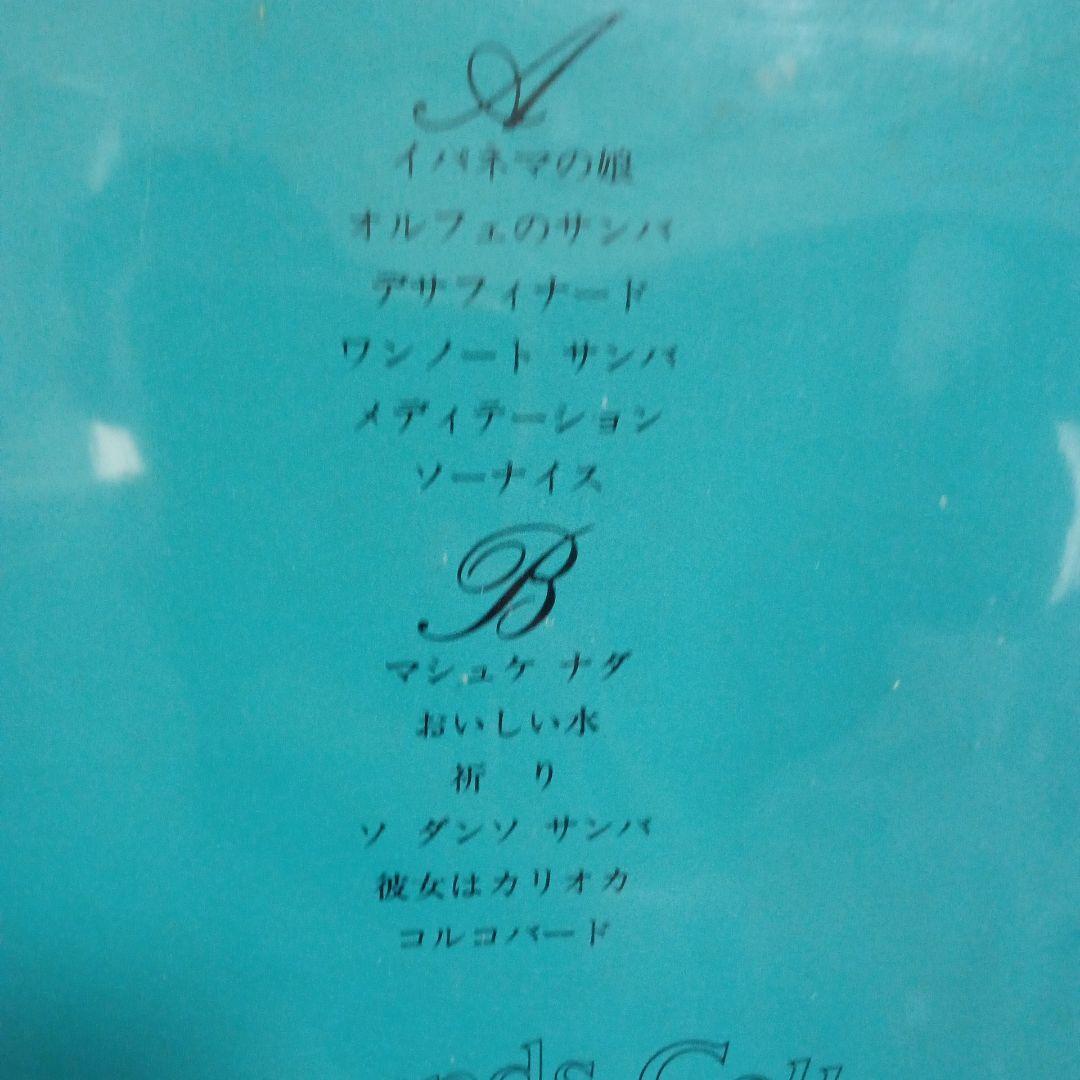 A
イパネマの娘
オルフェのサンバ
デサフィナード
ワンノート サンバ
メディテーション
ソーナイス
B
マシュケ ナダ
おいしい水
祈り
ソ ダンソ サンバ
彼女はカリオカ
コルコバード